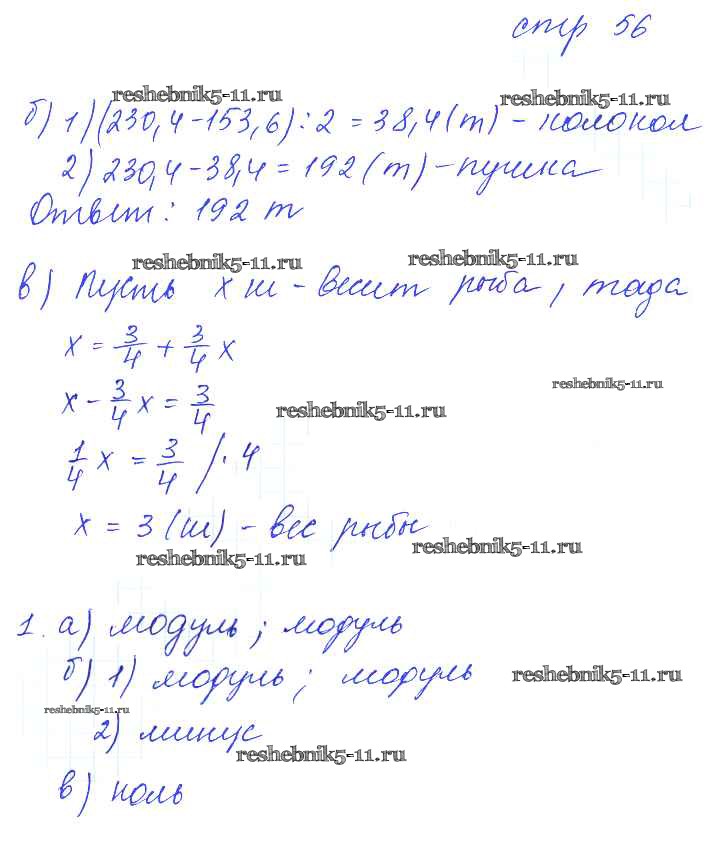 стр 56
reshebnik5-11.ru
reshebnik5-11.ru
б) 1) (230,4-153,6):2 = 38,4 (т) - колокол
2) 230,4-38,4 = 192 (т) - пушка
Ответ: 192 т
reshebnik5-11.ru
reshebnik5-11.ru
в) Пусть x ш - весит рыба, тада
x = 3/4 + 3/4 x
reshebnik5-11.ru
x - 3/4 x = 3/4
reshebnik5-11.ru
1/4 x = 3/4 /· 4
x = 3 (ш) - вес рыбы
reshebnik5-11.ru
reshebnik5-11.ru
1. а) модуль; модуль
б) 1) модуль; модуль
reshebnik5-11.ru
reshebnik5-11.ru
2) минус
reshebnik5-11.ru
в) ноль